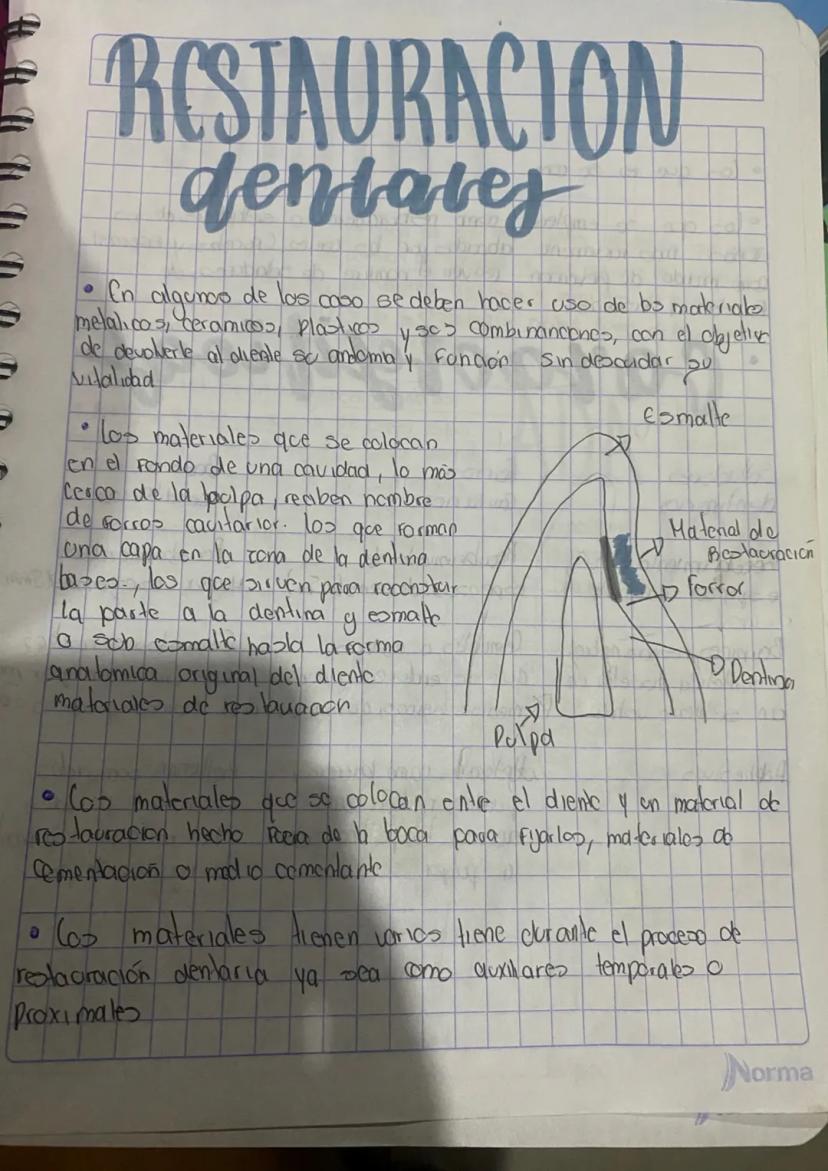 RESTAURACION
dentales
• En algunos de los caso se deben hacer uso de los materiales
metalicos, ceramicos, plásticos y sus combinanciones, con el objetivo
de devolverle al diente su andomia y función sin descudar su
vitalidad
• Los materiales que se colocan
en el fondo de una cavidad, lo más
cerca de la pulpa, reciben nombre
de forros cavitarior. los que forman
una capa en la zona de la dentina
bases., los que sirven para reconstuir
la parte a la dentina y esmalte
o sob esmalte hasta la forma
anatomica original del diente
materiales de restauracion
Esmalte
Material de
Restauración
Forror
Dentina
Pulpa
• Los materiales que se colocan ente el diente y un material de
restauracion hecho fuera de la boca para fijarlos, materiales de
cementación o medio cementante
• Los materiales tienen varios tiene durante el proceso de
restauración dentaria ya sea como auxiliares temporales o
proximales
Norma